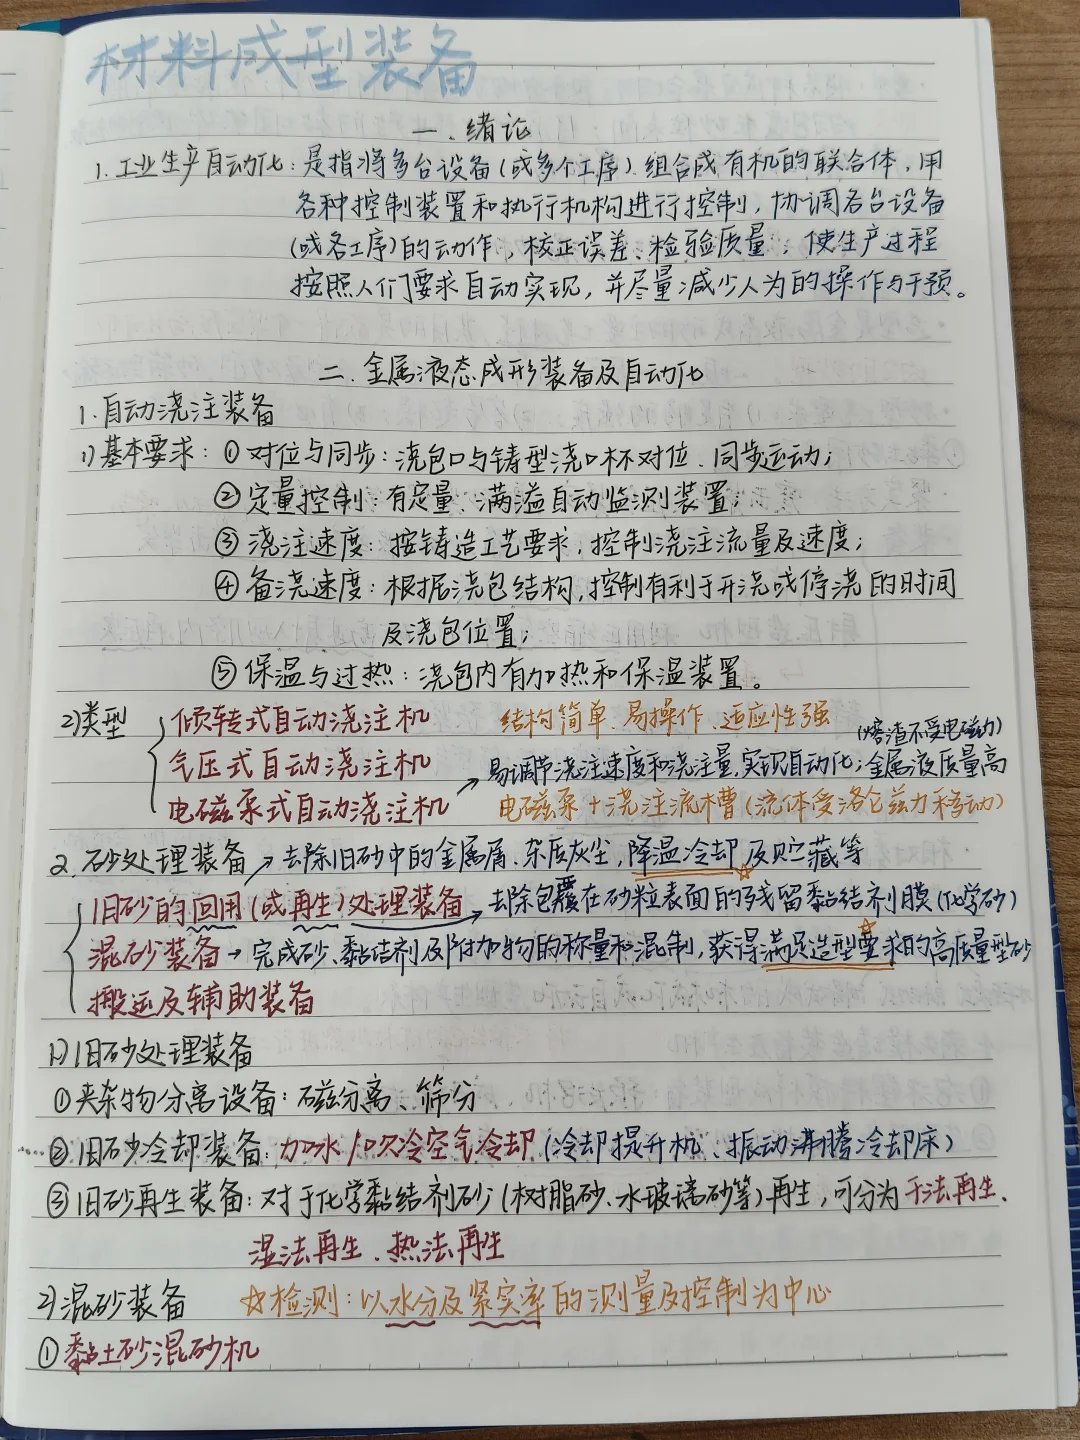 材料成型装备
一、绪论
1. 工业生产自动化：是指将多台设备（或多个工序）组合成有机的联合体，用
各种控制装置和执行机构进行控制，协调各台设备
（或各工序）的动作，校正误差、检验质量，使生产过程
按照人们要求自动实现，并尽量减少人为的操作与干预。
二、金属液态成形装备及自动化
1. 自动浇注装备
1) 基本要求：① 对位与同步：浇包口与铸型浇口杯对位、同步运动；
② 定量控制：有定量、满溢自动监测装置；
③ 浇注速度：按铸造工艺要求，控制浇注流量及速度；
④ 备浇速度：根据浇包结构，控制有利于开浇或停浇的时间
及浇包位置；
⑤ 保温与过热：浇包内有加热和保温装置。
2) 类型 倾转式自动浇注机 结构简单、易操作、适应性强
(熔渣不受电磁力)
气压式自动浇注机 易调节浇注速度和浇注量，实现自动化；金属液质量高
电磁泵式自动浇注机→ 电磁泵+浇注流槽（流体受洛仑兹力移动）
2. 砂处理装备→去除旧砂中的金属屑、杂质灰尘，降温冷却☆及贮藏等
旧砂的回用（或再生）处理装备→去除包覆在砂粒表面的残留黏结剂膜（化学砂）
混砂装备→完成砂、黏结剂及附加物的称量和混制，获得满足造型要求的高质量型砂
搬运及辅助装备
1) 旧砂处理装备
① 夹杂物分离设备：磁分离、筛分
② 旧砂冷却装备：加水/吹冷空气冷却（冷却提升机、振动沸腾冷却床）
③ 旧砂再生装备：对于化学黏结剂砂（树脂砂、水玻璃砂等）再生，可分为干法再生、
湿法再生、热法再生
2) 混砂装备 ☆检测：以水分及紧实率的测量及控制为中心
① 黏土砂混砂机